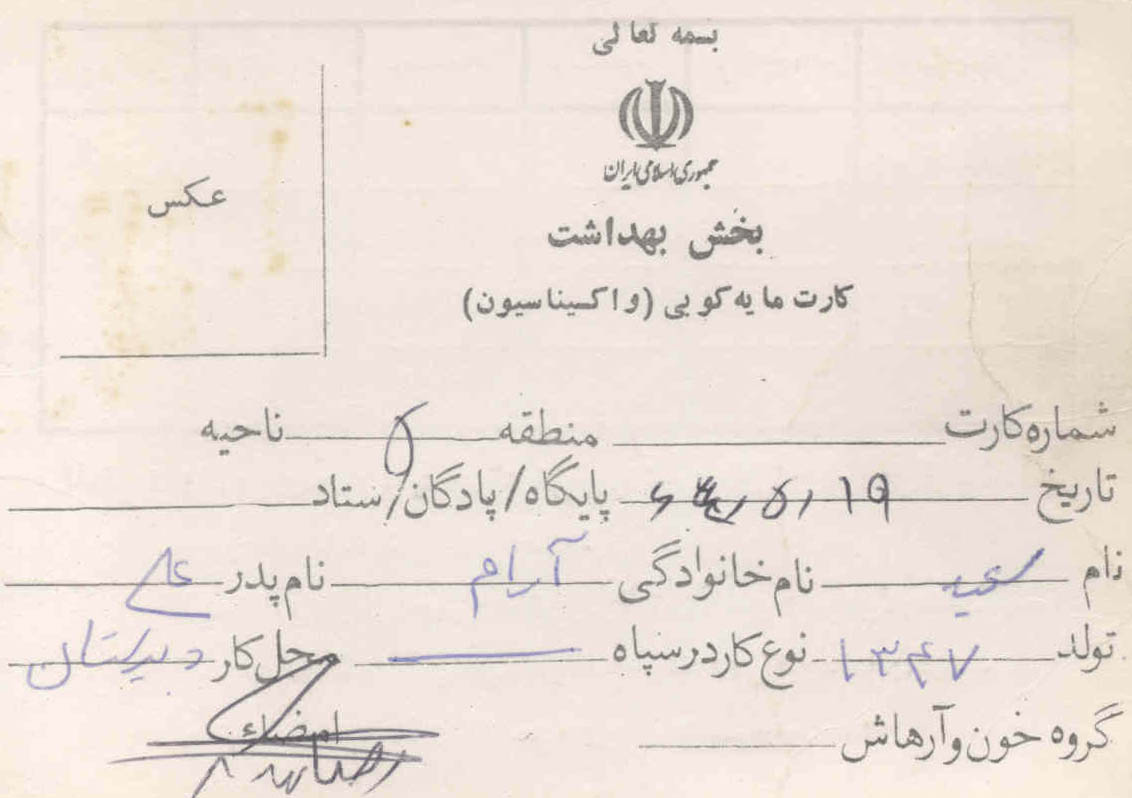 بسمه تعالی
جمهوری اسلامی ایران
عکس
بخش بهداشت
کارت مایه کوبی (واکسیناسیون)
شماره کارت منطقه ۵ ناحیه
تاریخ ۱۹ /۵/ پایگاه/پادگان/ستاد
نام سعید نام خانوادگی آرام نام پدر علی
تولد ۱۳۴۷ نوع کار در سپاه — محل کار دبیرستان
گروه خون و آرهاش امضاء